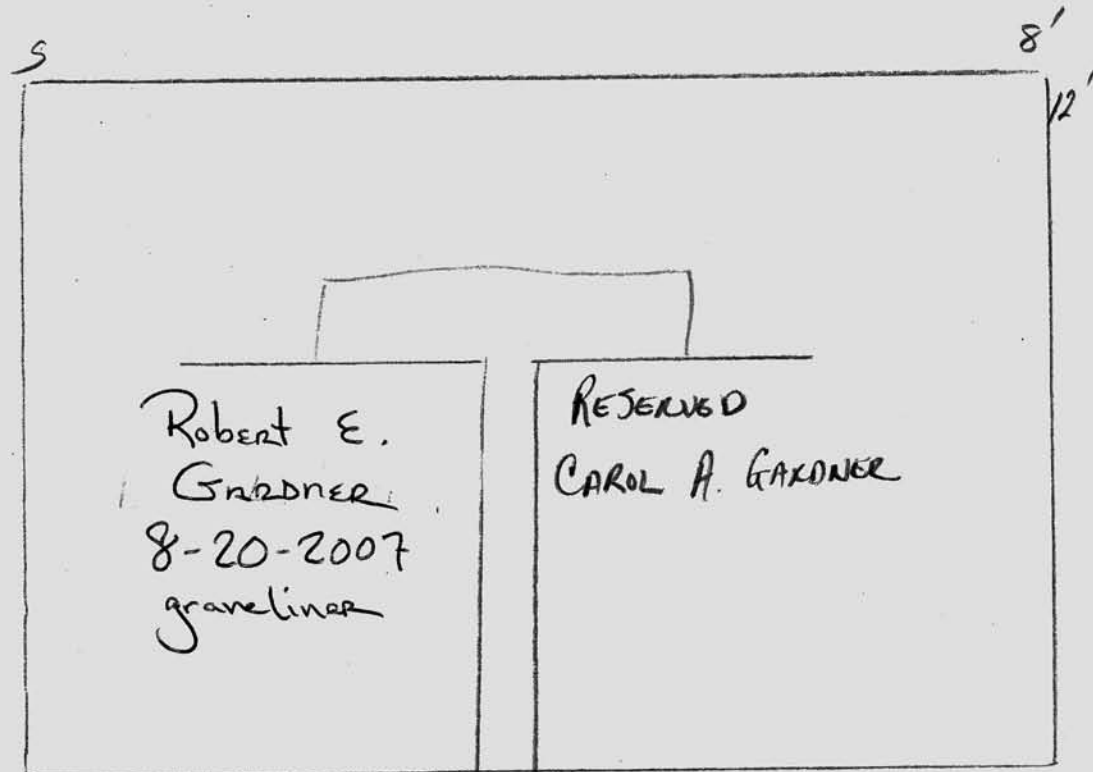 S
8'
12'
Robert E.
GARDNER
8-20-2007
graveliner
RESERVED
CAROL A. GARDNER